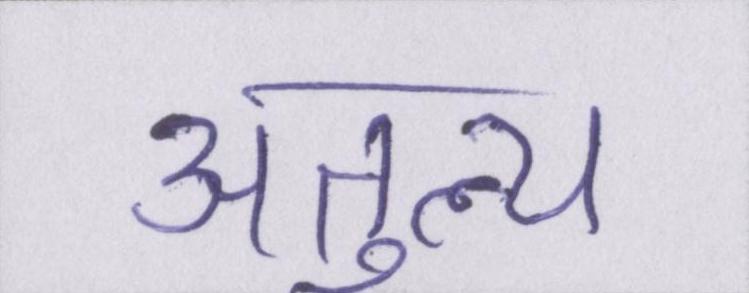 अतुल्य